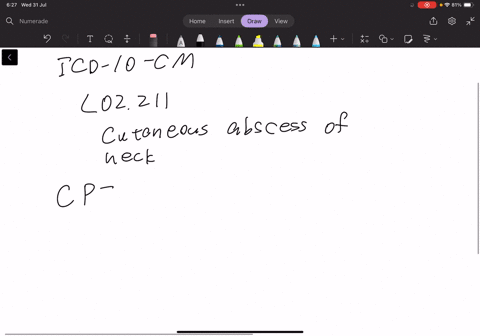 6:27 Wed 31 Jul
81%
Numerade
Home Insert Draw View
ICD-10-CM
L02.211
Cutaneous abscess of
neck
CPT